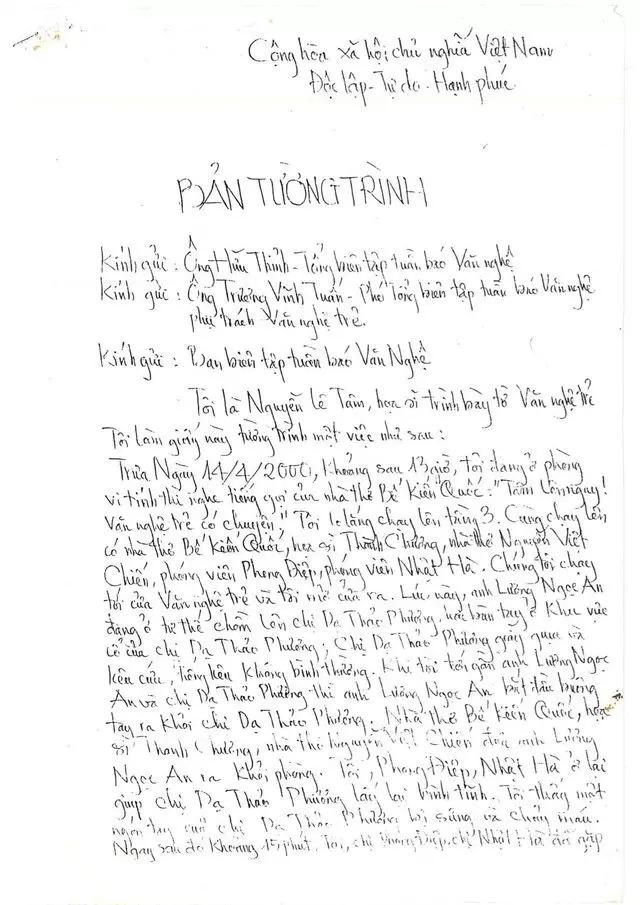 Cộng hòa xã hội chủ nghĩa Việt Nam
Độc lập - Tự do - Hạnh phúc
BẢN TƯỜNG TRÌNH
Kính gửi : Ông Hữu Thỉnh - Tổng biên tập tuần báo Văn nghệ
Kính gửi : Ông Trương Vĩnh Tuấn - Phó Tổng biên tập tuần báo Văn nghệ
phụ trách Văn nghệ trẻ.
Kính gửi : Ban biên tập tuần báo Văn Nghệ
Tôi là Nguyễn Lê Tâm, họa sĩ trình bày tờ Văn nghệ trẻ
Tôi làm giấy này tường trình một việc như sau :
Trưa Ngày 14/4/2000, Khoảng sau 13 giờ, tôi đang ở phòng
vi tính thì nghe tiếng gọi của nhà thơ Bế Kiến Quốc : "Tâm lên ngay!
Văn nghệ trẻ có chuyện". Tôi lo lắng chạy lên tầng 3. Cùng chạy lên
có nhà thơ Bế Kiến Quốc, họa sĩ Thành Chương, nhà thơ Nguyễn Việt
Chiến, phóng viên Phong Điệp, phóng viên Nhật Hà. Chúng tôi chạy
tới cửa Văn nghệ trẻ và tôi mở cửa ra. Lúc này, anh Lương Ngọc An
đang ở tư thế chồm lên chị Dạ Thảo Phương, hai bàn tay ở khu vực
cổ của chị Dạ Thảo Phương; Chị Dạ Thảo Phương giãy giụa và
kêu cứu, tiếng kêu không bình thường. Khi tôi tới gần anh Lương Ngọc
An và chị Dạ Thảo Phương thì anh Lương Ngọc An bắt đầu buông
tay ra khỏi chị Dạ Thảo Phương. Nhà thơ Bế Kiến Quốc, họa
sĩ Thành Chương, nhà thơ Nguyễn Việt Chiến đưa anh Lương
Ngọc An ra khỏi phòng. Tôi, Phong Điệp, Nhật Hà ở lại
giúp chị Dạ Thảo Phương lấy lại bình tĩnh. Tôi thấy một
ngón tay của chị Dạ Thảo Phương bị sưng và chảy máu.
Ngay sau đó khoảng 15 phút, Tôi, chị Phong Điệp, chị Nhật Hà đã gặp